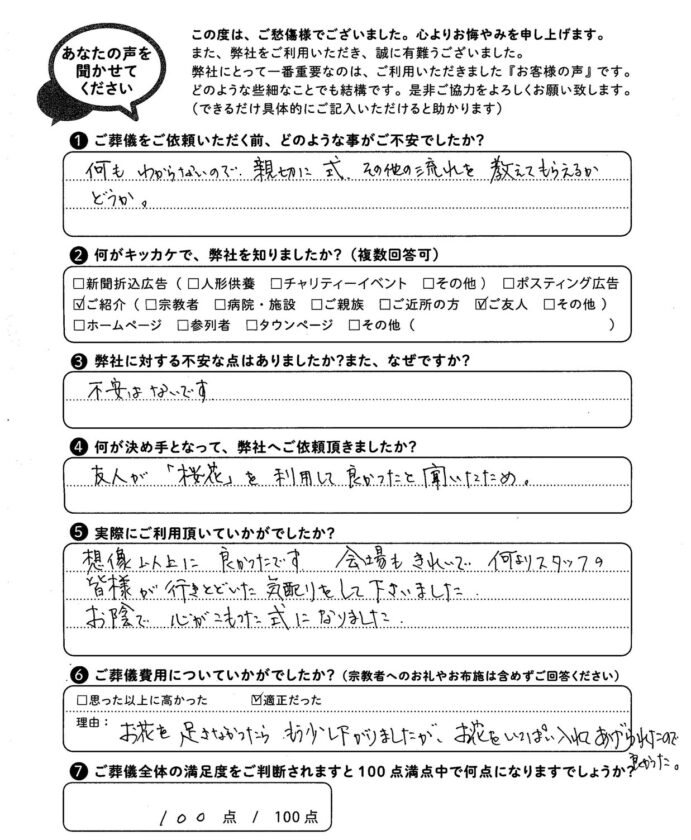 あなたの声を
聞かせて
ください
この度は、ご愁傷様でございました。心よりお悔やみを申し上げます。
また、弊社をご利用いただき、誠に有難うございました。
弊社にとって一番重要なのは、ご利用いただきました『お客様の声』です。
どのような些細なことでも結構です。是非ご協力をよろしくお願い致します。
(できるだけ具体的にご記入いただけると助かります)
❶ ご葬儀をご依頼いただく前、どのような事がご不安でしたか?
何も わからないので、親切に 式、その他の流れを 教えてもらえるか
どうか。
❷ 何がキッカケで、弊社を知りましたか?(複数回答可)
□新聞折込広告(□人形供養 □チャリティーイベント □その他) □ポスティング広告
☑ご紹介(□宗教者 □病院・施設 □ご親族 □ご近所の方 ☑ご友人 □その他)
□ホームページ □参列者 □タウンページ □その他( )
❸ 弊社に対する不安な点はありましたか?また、なぜですか?
不安はないです
❹ 何が決め手となって、弊社へご依頼頂きましたか?
友人が 「桜花」を 利用して 良かったと 聞いたため。
❺ 実際にご利用頂いていかがでしたか?
想像以上に 良かったです 会場も きれいで 何よりスタッフの
皆様が 行きとどいた 気配りをして下さいました.
お陰で 心がこもった 式に なりました.
❻ ご葬儀費用についていかがでしたか?(宗教者へのお礼やお布施は含めずご回答ください)
□思った以上に高かった ☑適正だった
理由: お花を 足さなかったら もう少し下がりましたが、お花をいっぱい入れてあげられたので
良かった。
❼ ご葬儀全体の満足度をご判断されますと100点満点中で何点になりますでしょうか?
100 点 / 100点